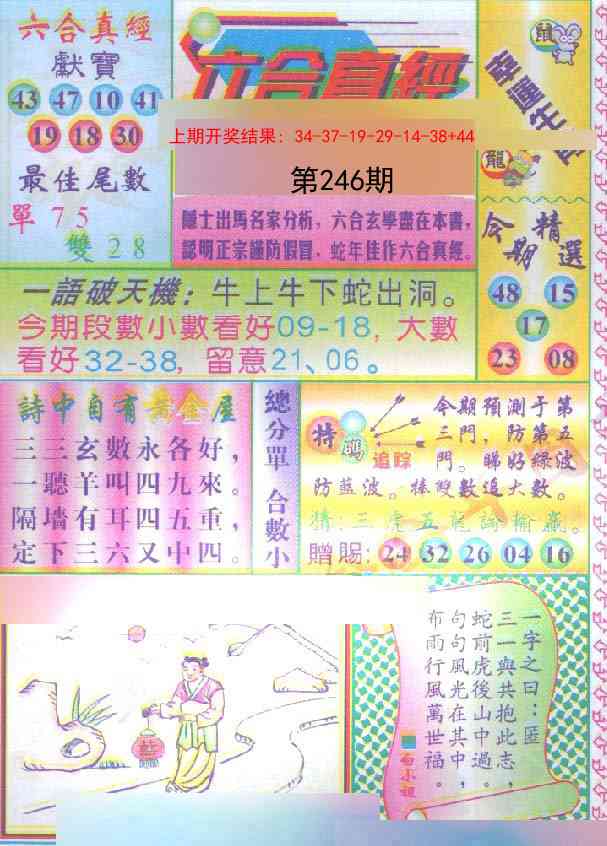 六合真經
獻寶
43 47 10 41
19 18 30
最佳尾數
單75
雙28
六合真經
上期开奖结果: 34-37-19-29-14-38+44
第246期
隱士出馬名家分析，六合玄學盡在本書，
認明正宗謹防假冒，蛇年佳作六合真經。
鼠
幸運生肖
龍
今期精選
48 15
17
23 08
一語破天機：牛上牛下蛇出洞。
今期段數小數看好09-18, 大數
看好32-38, 留意21、06。
詩中自有黃金屋
三三玄數永各好，
一聽羊叫四九來。
隔墻有耳四五重，
定下三六又中四。
總分單 合數小
特碼
追踪
今期預測于第
三門，防第五
門。睇好綠波
防藍波。棒雙數追大數。
猜：三虎五龍論輸贏。
贈賜: 24 32 26 04 16
一字之曰：匿
三一與共抱此志，
蛇前虎後山中過。
句句風光在其中，
布雨行風萬世福。
藍